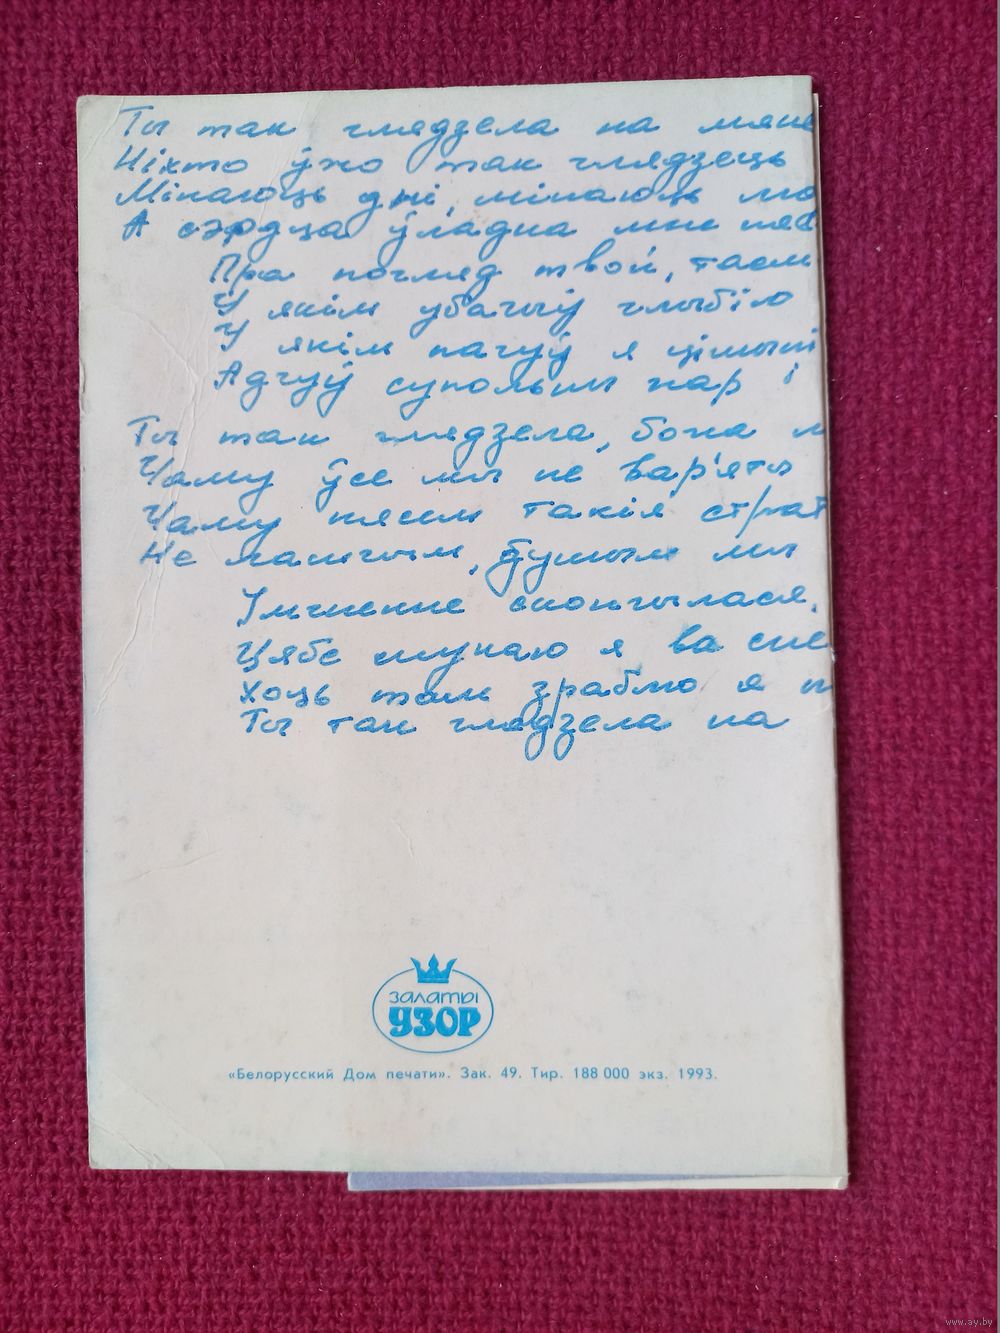 Ты так глядзела на мяне
Ніхто ўжо так глядзець
Мінаюць дні, мінаюць
А сэрца ўладна мне
Пра погляд твой,
У якім убачыў глыбію
У якім пачуў я
Адчуў супольны жар і
Ты так глядзела, божа
Чаму ўсе мы не вар'яты
Чаму нясем такія
Не лашчым, душым мы
Імгненне скончылася,
Цябе шукаю я ва сне
Хоць там зраблю я
Ты так глядзела на
ЗАЛАТЫ
УЗОР
«Белорусский Дом печати». Зак. 49. Тир. 188 000 экз. 1993.
www.ay.by